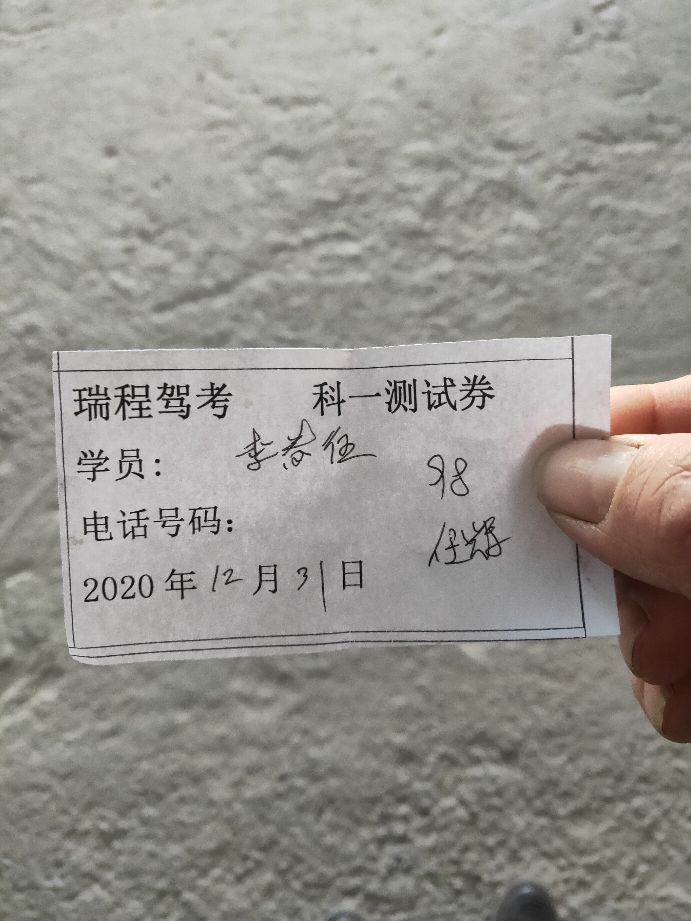 瑞程驾考 科一测试券
学员: 李
98
电话号码:
任
2020年12月31日